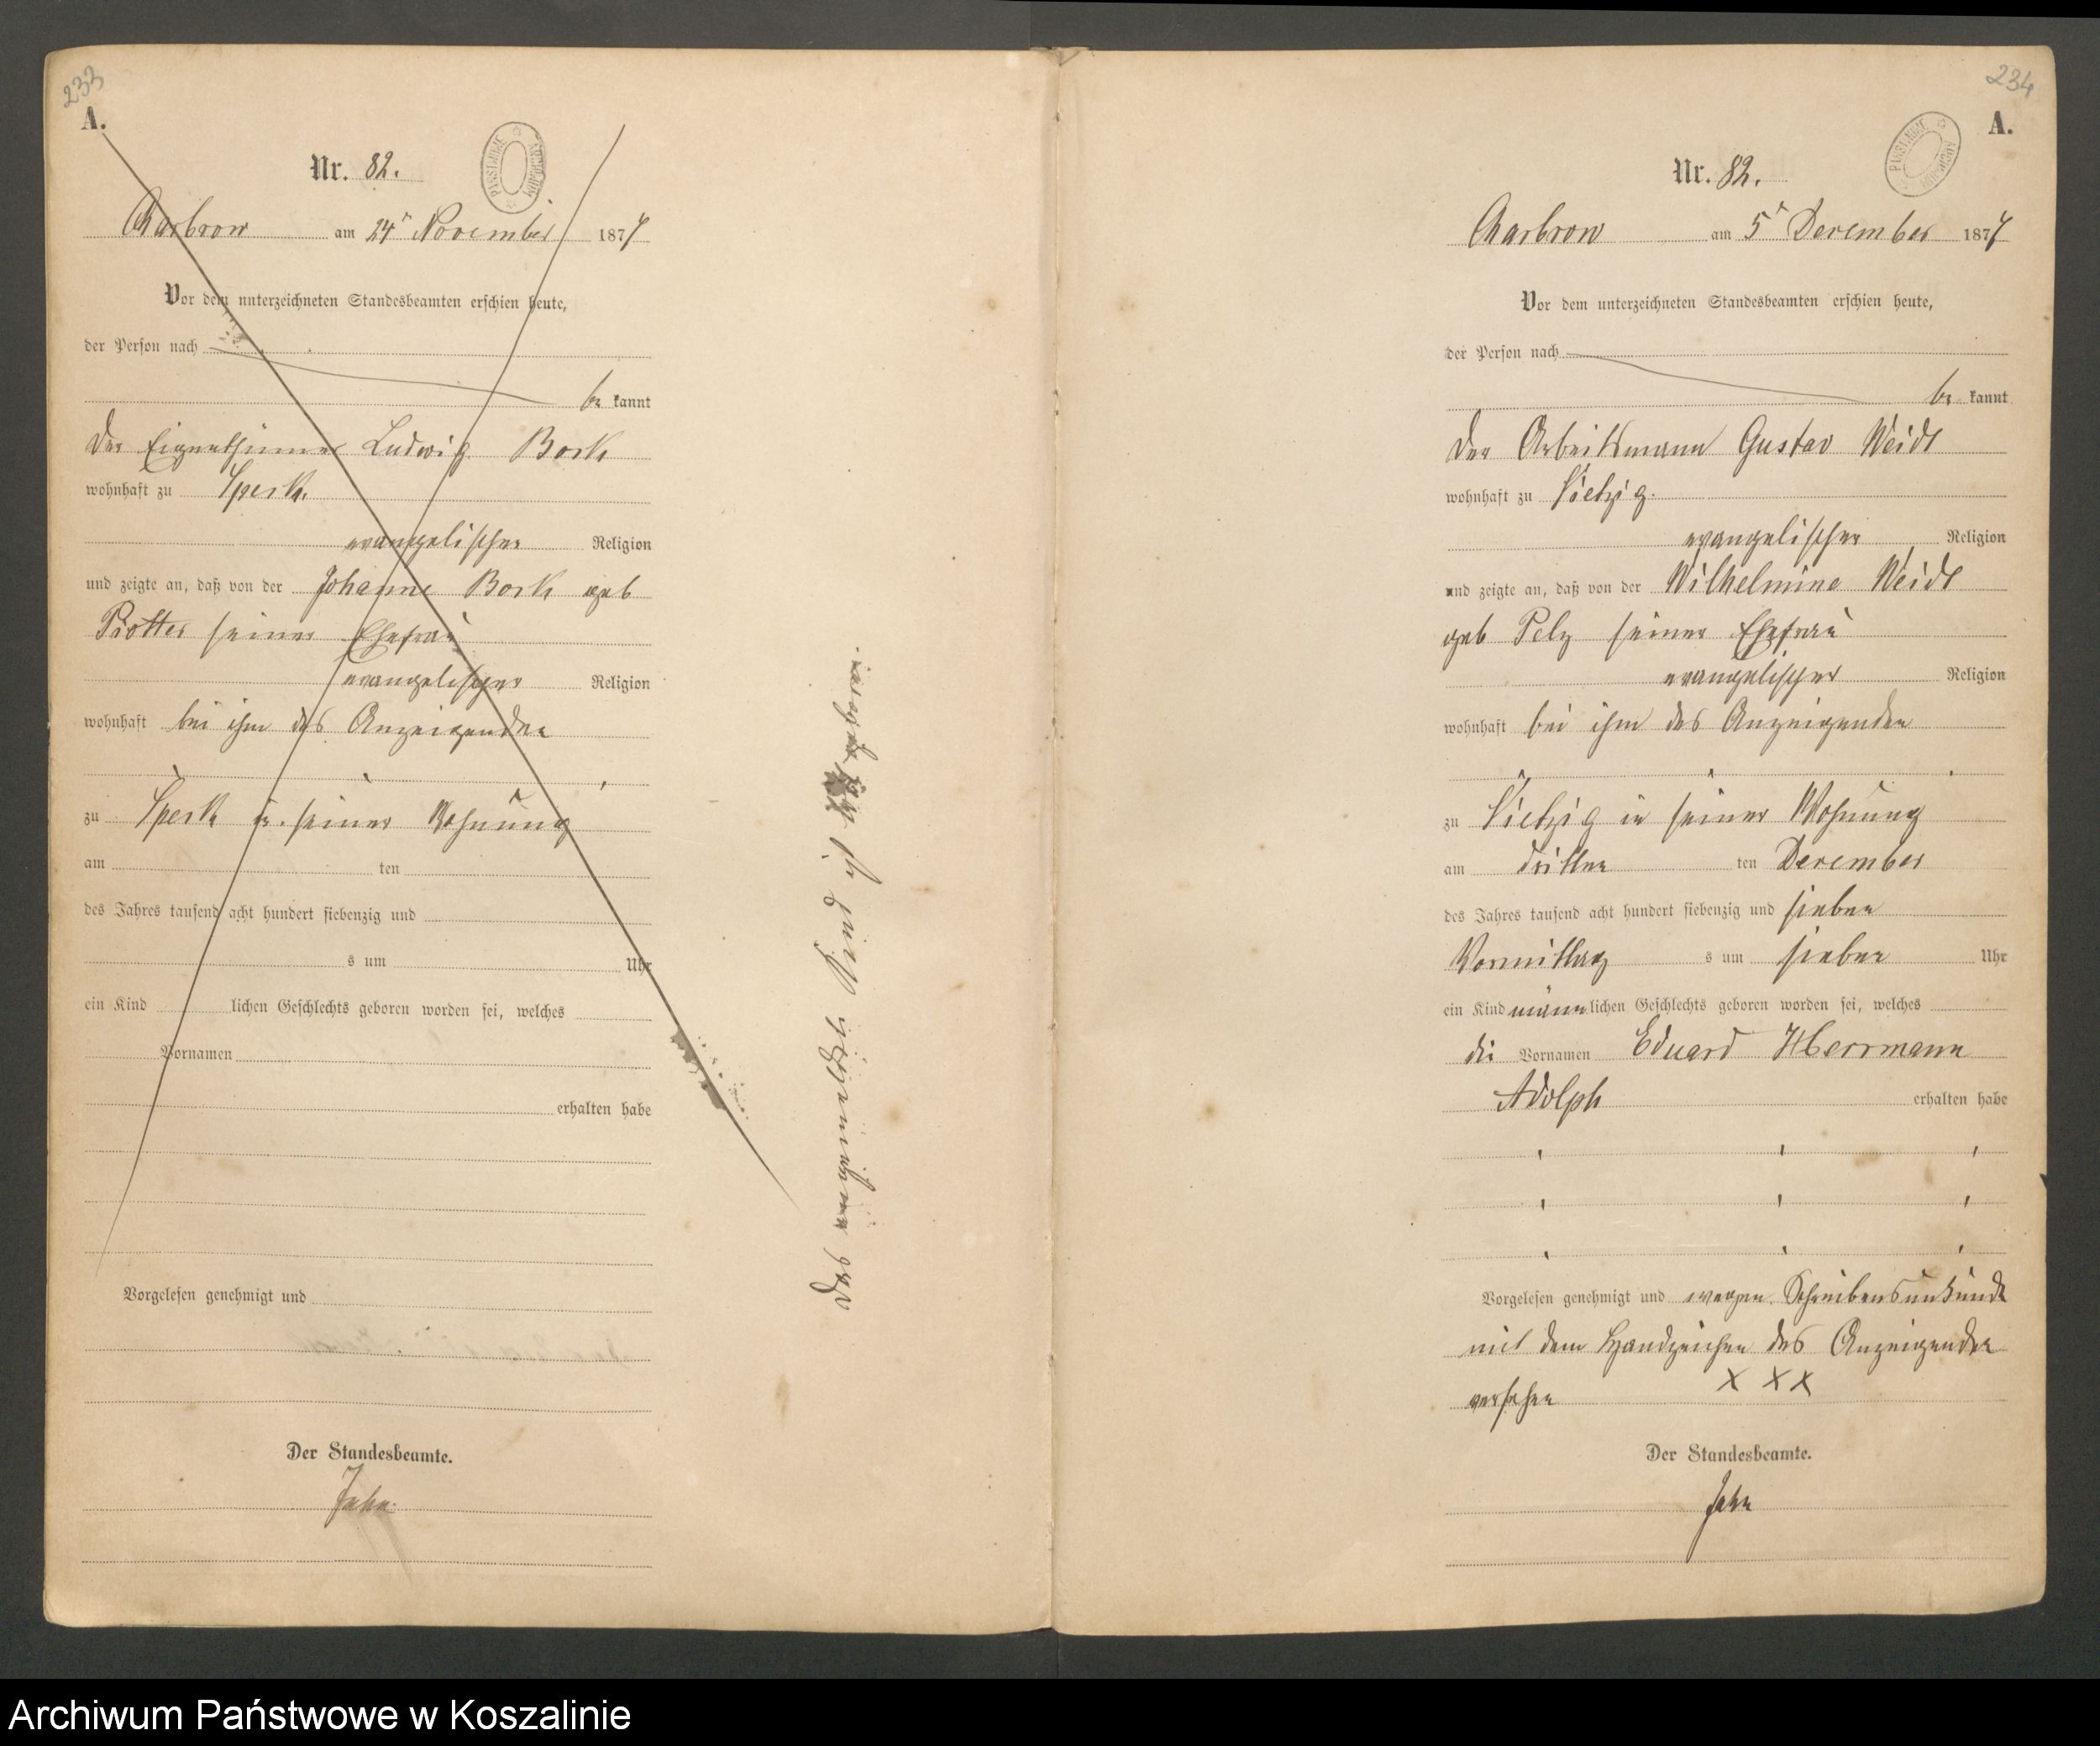 233
A.
Nr. 82.
PAŃSTWOWE ARCHIWUM
Charbrow am 24ᵗ November 1877
Vor dem unterzeichneten Standesbeamten erschien heute,
der Person nach
be kannt
der Eigenthümer Ludwig Bork
wohnhaft zu Speck.
evangelischer Religion
und zeigte an, daß von der Johanne Bork geb
seiner Ehefrau
evangelischer Religion
wohnhaft bei ihm des Anzeigenden
zu Speck in seiner Wohnung
am ten
des Jahres tausend acht hundert siebenzig und
s um Uhr
ein Kind lichen Geschlechts geboren worden sei, welches
Vornamen
erhalten habe
Vorgelesen genehmigt und
Der Standesbeamte.
Jahn.
Das Kind ist
234
A.
PAŃSTWOWE ARCHIWUM
Nr. 82.
Charbrow am 5ᵗ December 1877
Vor dem unterzeichneten Standesbeamten erschien heute,
der Person nach
be kannt
der Arbeitsmann Gustav Weide
wohnhaft zu Vietzig.
evangelischer Religion
und zeigte an, daß von der Wilhelmine Weide
geb Pelz seiner Ehefrau
evangelischer Religion
wohnhaft bei ihm des Anzeigenden
zu Vietzig in seiner Wohnung
am dritten ten December
des Jahres tausend acht hundert siebenzig und sieben
Vormittag s um sieben Uhr
ein Kind männlichen Geschlechts geboren worden sei, welches
die Vornamen Eduard Herrmann
Adolph erhalten habe
Vorgelesen genehmigt und wegen Schreibensunkunde
mit dem Handzeichen des Anzeigenden
versehen X X X
Der Standesbeamte.
Jahn
Archiwum Państwowe w Koszalinie